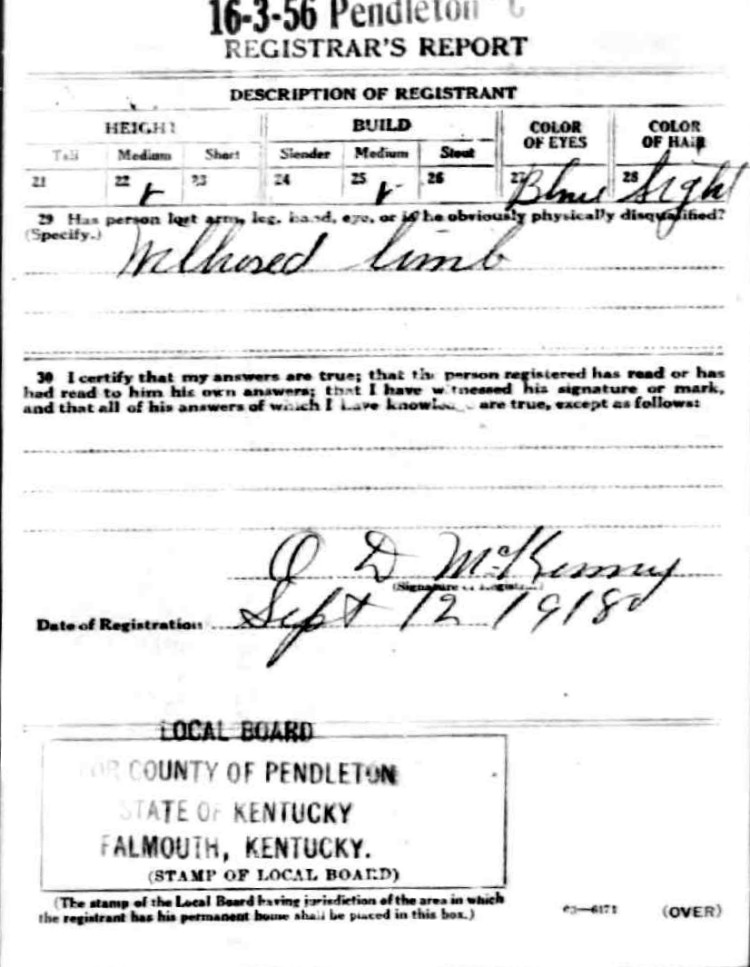 16-3-56 Pendleton C
REGISTRAR'S REPORT
DESCRIPTION OF REGISTRANT
HEIGHT BUILD COLOR OF EYES COLOR OF HAIR
Tall Medium Short Slender Medium Stout
21 22 ✓ 23 24 25 ✓ 26 27 Blue 28 Light
29 Has person lost arm, leg, hand, eye, or is he obviously physically disqualified?
(Specify.)
limb
30 I certify that my answers are true; that the person registered has read or has
had read to him his own answers; that I have witnessed his signature or mark,
and that all of his answers of which I have knowledge are true, except as follows:
O D McKenny
(Signature of Registrar)
Date of Registration Sept 12 1918
LOCAL BOARD
FOR COUNTY OF PENDLETON
STATE OF KENTUCKY
FALMOUTH, KENTUCKY.
(STAMP OF LOCAL BOARD)
(The stamp of the Local Board having jurisdiction of the area in which
the registrant has his permanent home shall be placed in this box.)
03—6171 (OVER)